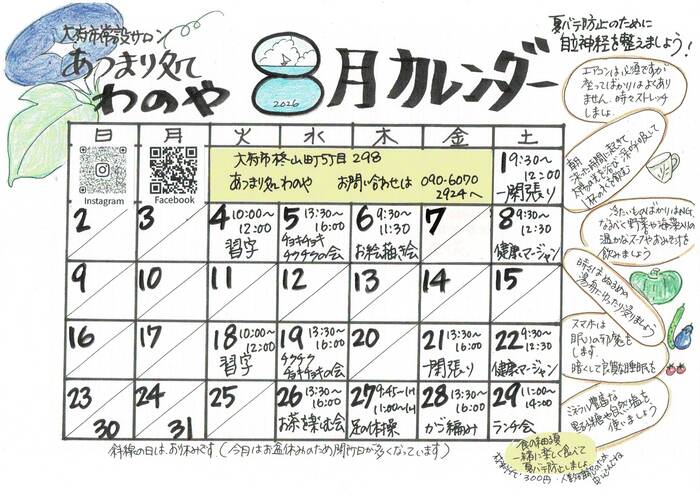 大府市常設サロン
あつまり処
わのや
8月カレンダー
2026
夏バテ防止のために
自立神経を整えましょう！
日 月 火 水 木 金 土
Instagram
Facebook
大府市柊山町5丁目298
あつまり処わのや お問い合わせは 090-6070
2924へ
1 9:30〜
12:00
一閑張り
2
3
4 10:00〜
12:00
習字
5 13:30〜
16:00
チョキチョキ
チクチクの会
6 9:30〜
11:30
お絵描き会
7
8 9:30〜
12:30
健康マージャン
9
10
11
12
13
14
15
16
17
18 10:00〜
12:00
習字
19 13:30〜
16:00
チクチク
チョキチョキの会
20
21 13:30〜
16:00
一閑張り
22 9:30〜
12:30
健康マージャン
23
30
24
31
25
26 13:30〜
16:00
お茶を楽む会
27 9:45〜
11:00〜
足の体操
28 13:30〜
16:00
かご編み
29 11:00〜
14:00
ランチ会
斜線の日は、お休みです（今月はお盆休みのため閉所日が多くなっています）
エアコンは必須ですが
座ってばかりはよくあり
ません、時々ストレッチ
しましょ。
朝
決った時間に起きて
冷たいものばかりはNG
なるべく野菜や海藻入りの
温かなスープやおみそ汁を
飲みましょう
時にはぬるめの
湯舟にゆったり浸りましょう
スマホは
眠りの邪魔を
します。
暗くして良質な睡眠を
使いましょう
食の細る夏
一緒に楽しく食べて
夏バテ防止しましょ。
300円